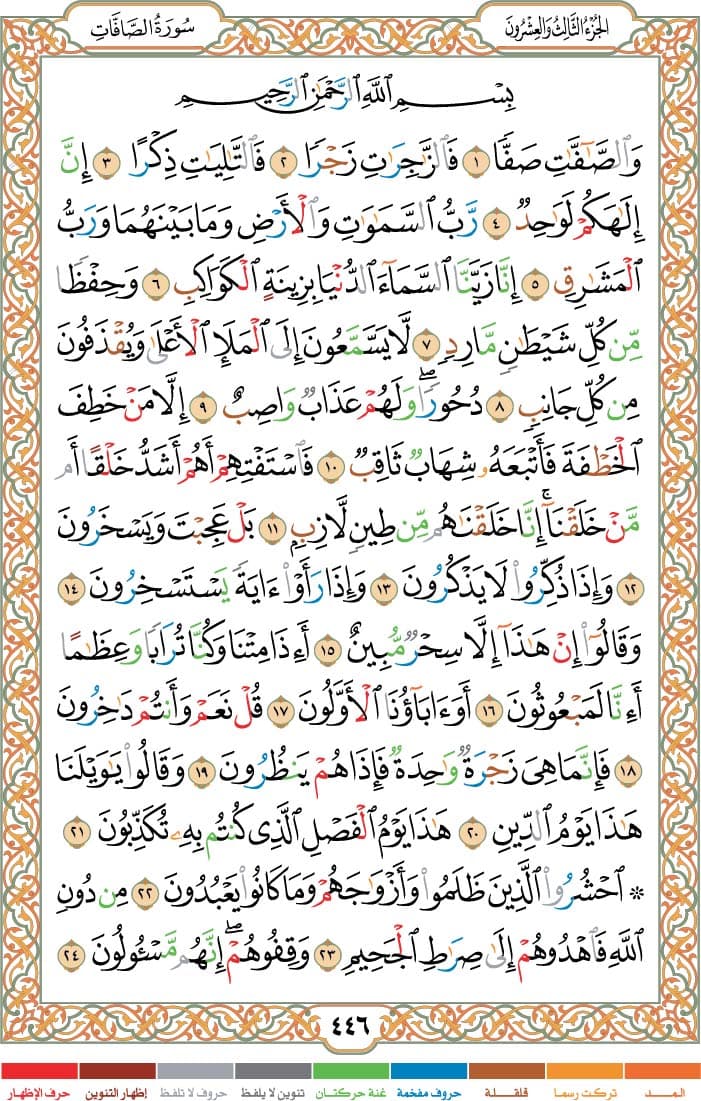 الجُزْءُ الثَّالِثُ وَالعِشْرُونَ
سُورَةُ الصَّافَّاتِ
بِسْمِ ٱللَّهِ ٱلرَّحْمَٰنِ ٱلرَّحِيمِ
وَٱلصَّٰٓفَّٰتِ صَفًّا ١ فَٱلزَّٰجِرَٰتِ زَجْرًا ٢ فَٱلتَّٰلِيَٰتِ ذِكْرًا ٣ إِنَّ
إِلَٰهَكُمْ لَوَٰحِدٌ ٤ رَّبُّ ٱلسَّمَٰوَٰتِ وَٱلْأَرْضِ وَمَا بَيْنَهُمَا وَرَبُّ
ٱلْمَشَٰرِقِ ٥ إِنَّا زَيَّنَّا ٱلسَّمَآءَ ٱلدُّنْيَا بِزِينَةٍ ٱلْكَوَاكِبِ ٦ وَحِفْظًا
مِّن كُلِّ شَيْطَٰنٍ مَّارِدٍ ٧ لَّا يَسَّمَّعُونَ إِلَى ٱلْمَلَإِ ٱلْأَعْلَىٰ وَيُقْذَفُونَ
مِن كُلِّ جَانِبٍ ٨ دُحُورًا ۖ وَلَهُمْ عَذَابٌ وَاصِبٌ ٩ إِلَّا مَنْ خَطِفَ
ٱلْخَطْفَةَ فَأَتْبَعَهُۥ شِهَابٌ ثَاقِبٌ ١٠ فَٱسْتَفْتِهِمْ أَهُمْ أَشَدُّ خَلْقًا أَم
مَّنْ خَلَقْنَآ ۚ إِنَّا خَلَقْنَٰهُم مِّن طِينٍ لَّازِبٍ ١١ بَلْ عَجِبْتَ وَيَسْخَرُونَ
١٢ وَإِذَا ذُكِّرُوا۟ لَا يَذْكُرُونَ ١٣ وَإِذَا رَأَوْا۟ ءَايَةً يَسْتَسْخِرُونَ ١٤
وَقَالُوٓا۟ إِنْ هَٰذَآ إِلَّا سِحْرٌ مُّبِينٌ ١٥ أَءِذَا مِتْنَا وَكُنَّا تُرَابًا وَعِظَٰمًا
أَءِنَّا لَمَبْعُوثُونَ ١٦ أَوَءَابَآؤُنَا ٱلْأَوَّلُونَ ١٧ قُلْ نَعَمْ وَأَنتُمْ دَٰخِرُونَ
١٨ فَإِنَّمَا هِىَ زَجْرَةٌ وَٰحِدَةٌ فَإِذَا هُمْ يَنظُرُونَ ١٩ وَقَالُوا۟ يَٰوَيْلَنَا
هَٰذَا يَوْمُ ٱلدِّينِ ٢٠ هَٰذَا يَوْمُ ٱلْفَصْلِ ٱلَّذِى كُنتُم بِهِۦ تُكَذِّبُونَ ٢١
۞ ٱحْشُرُوا۟ ٱلَّذِينَ ظَلَمُوا۟ وَأَزْوَٰجَهُمْ وَمَا كَانُوا۟ يَعْبُدُونَ ٢٢ مِن دُونِ
ٱللَّهِ فَٱهْدُوهُمْ إِلَىٰ صِرَٰطِ ٱلْجَحِيمِ ٢٣ وَقِفُوهُمْ ۖ إِنَّهُم مَّسْـُٔولُونَ ٢٤
٤٤٦
المـــد تركت رسما قلقـلـة حروف مفخمة غنة حركتـان تنوين لا يلفظ حروف لا تلفظ إظهار التنوين حرف الإظهار